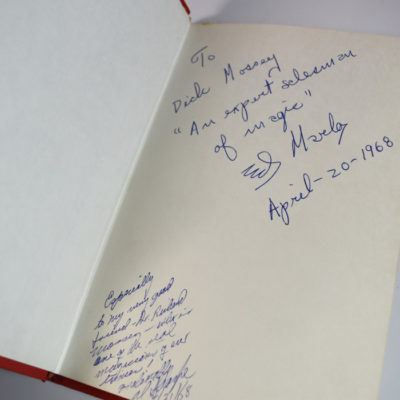 To
Dick Mossey
"An expert salesman
of magic"
Ed Marlo
April-20-1968
Especially
to my very good
friend-Dr.
who is
one of the real
of our